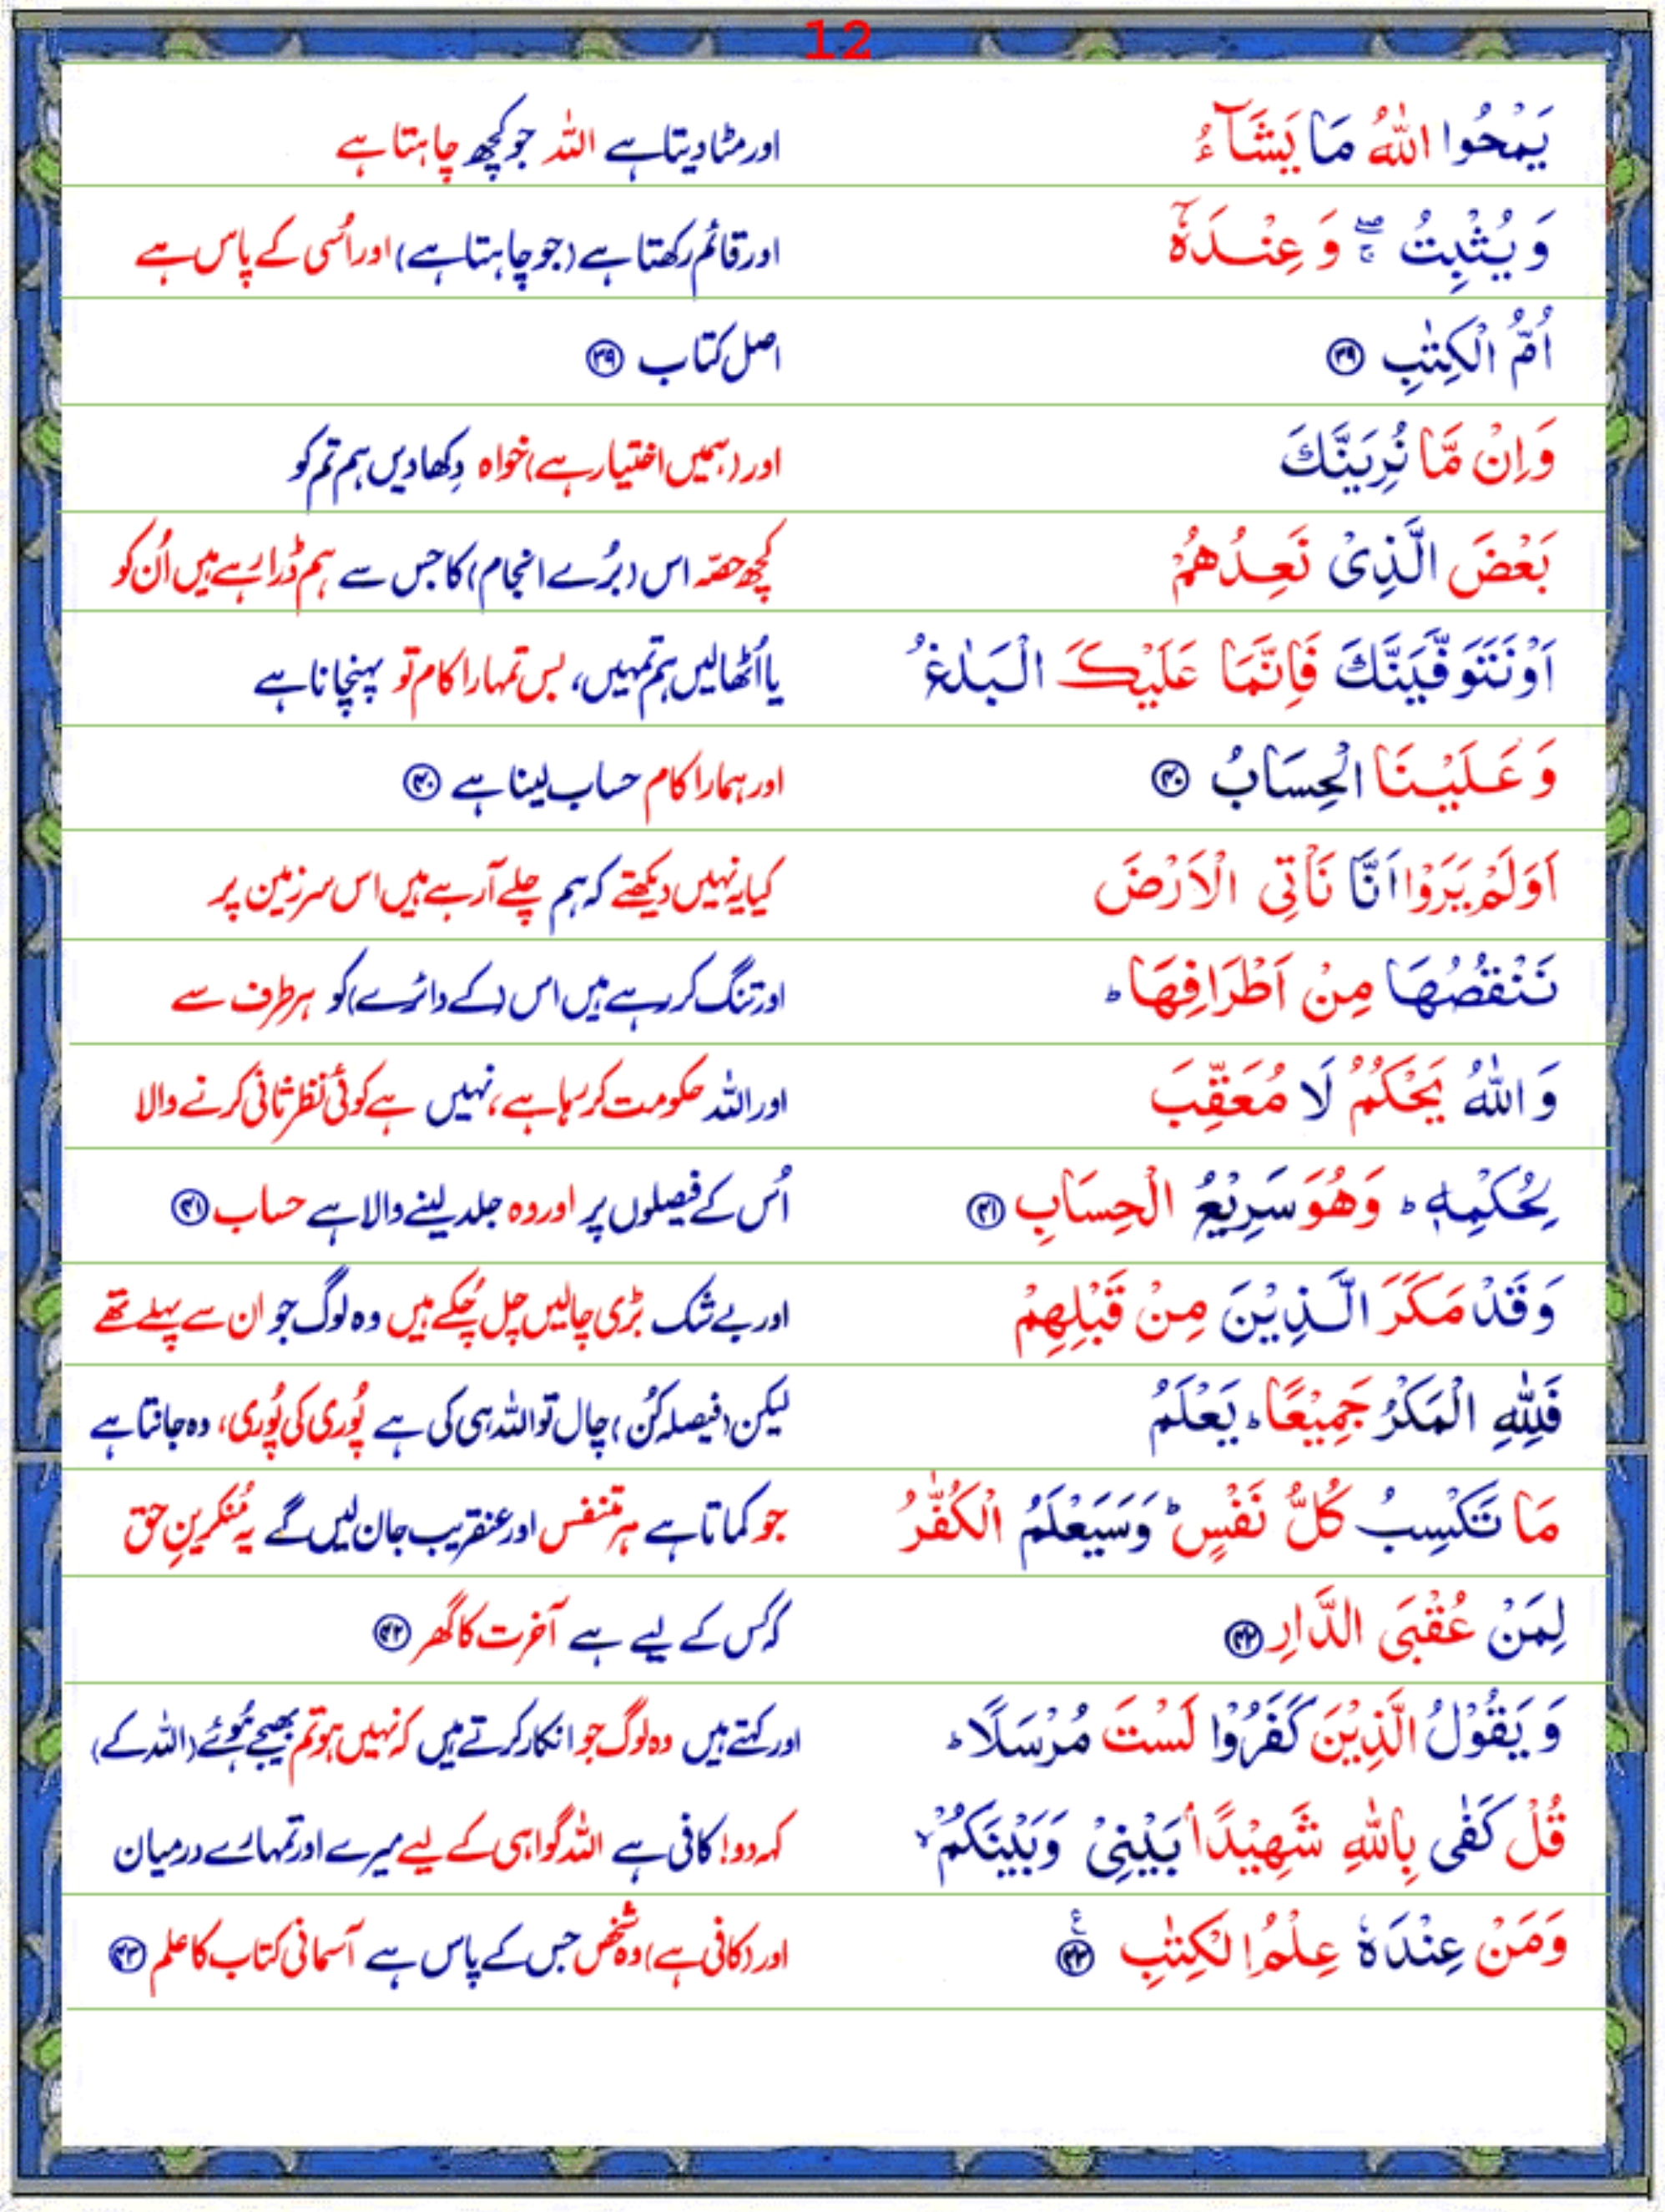 12
یَمْحُوا اللّٰهُ مَا یَشَآءُ اور مٹا دیتا ہے اللہ جو کچھ چاہتا ہے
وَ یُثْبِتُ ۖۚ وَ عِنْدَهٗۤ اور قائم رکھتا ہے (جو چاہتا ہے) اور اُسی کے پاس ہے
اُمُّ الْكِتٰبِ ۳۹ اصل کتاب ۳۹
وَ اِنْ مَّا نُرِیَنَّكَ اور (ہمیں اختیار ہے) خواہ دِکھا دیں ہم تم کو
بَعْضَ الَّذِیْ نَعِدُهُمْ کچھ حصّہ اس (بُرے انجام) کا جس سے ہم ڈرا رہے ہیں اُن کو
اَوْ نَتَوَفَّیَنَّكَ فَاِنَّمَا عَلَیْكَ الْبَلٰغُ یا اُٹھا لیں ہم تمہیں، بس تمہارا کام تو پہنچانا ہے
وَ عَلَیْنَا الْحِسَابُ ۴۰ اور ہمارا کام حساب لینا ہے ۴۰
اَوَلَمْ یَرَوْا اَنَّا نَاْتِی الْاَرْضَ کیا یہ نہیں دیکھتے کہ ہم چلے آ رہے ہیں اس سرزمین پر
نَنْقُصُهَا مِنْ اَطْرَافِهَا ؕ اور تنگ کر رہے ہیں اس (کے دائرے) کو ہر طرف سے
وَ اللّٰهُ یَحْكُمُ لَا مُعَقِّبَ اور اللہ حکومت کر رہا ہے، نہیں ہے کوئی نظر ثانی کرنے والا
لِحُكْمِهٖ ؕ وَ هُوَ سَرِیْعُ الْحِسَابِ ۴۱ اُس کے فیصلوں پر اور وہ جلد لینے والا ہے حساب ۴۱
وَ قَدْ مَكَرَ الَّذِیْنَ مِنْ قَبْلِهِمْ اور بے شک بڑی چالیں چل چُکے ہیں وہ لوگ جو ان سے پہلے تھے
فَلِلّٰهِ الْمَكْرُ جَمِیْعًا ؕ یَعْلَمُ لیکن (فیصلہ کُن) چال تو اللہ ہی کی ہے پُوری کی پُوری، وہ جانتا ہے
مَا تَكْسِبُ كُلُّ نَفْسٍ ؕ وَ سَیَعْلَمُ الْكُفّٰرُ جو کماتا ہے ہر متنفس اور عنقریب جان لیں گے یہ مُنکرینِ حق
لِمَنْ عُقْبَی الدَّارِ ۴۲ کہ کس کے لیے ہے آخرت کا گھر ۴۲
وَ یَقُوْلُ الَّذِیْنَ كَفَرُوْا لَسْتَ مُرْسَلًا ؕ اور کہتے ہیں وہ لوگ جو انکار کرتے ہیں کہ نہیں ہو تم بھیجے ہُوئے (اللہ کے)
قُلْ كَفٰی بِاللّٰهِ شَهِیْدًۢا بَیْنِیْ وَ بَیْنَكُمْ ۙ کہہ دو! کافی ہے اللہ گواہی کے لیے میرے اور تمہارے درمیان
وَ مَنْ عِنْدَهٗ عِلْمُ الْكِتٰبِ ۴۳ اور (کافی ہے) وہ شخص جس کے پاس ہے آسمانی کتاب کا علم ۴۳